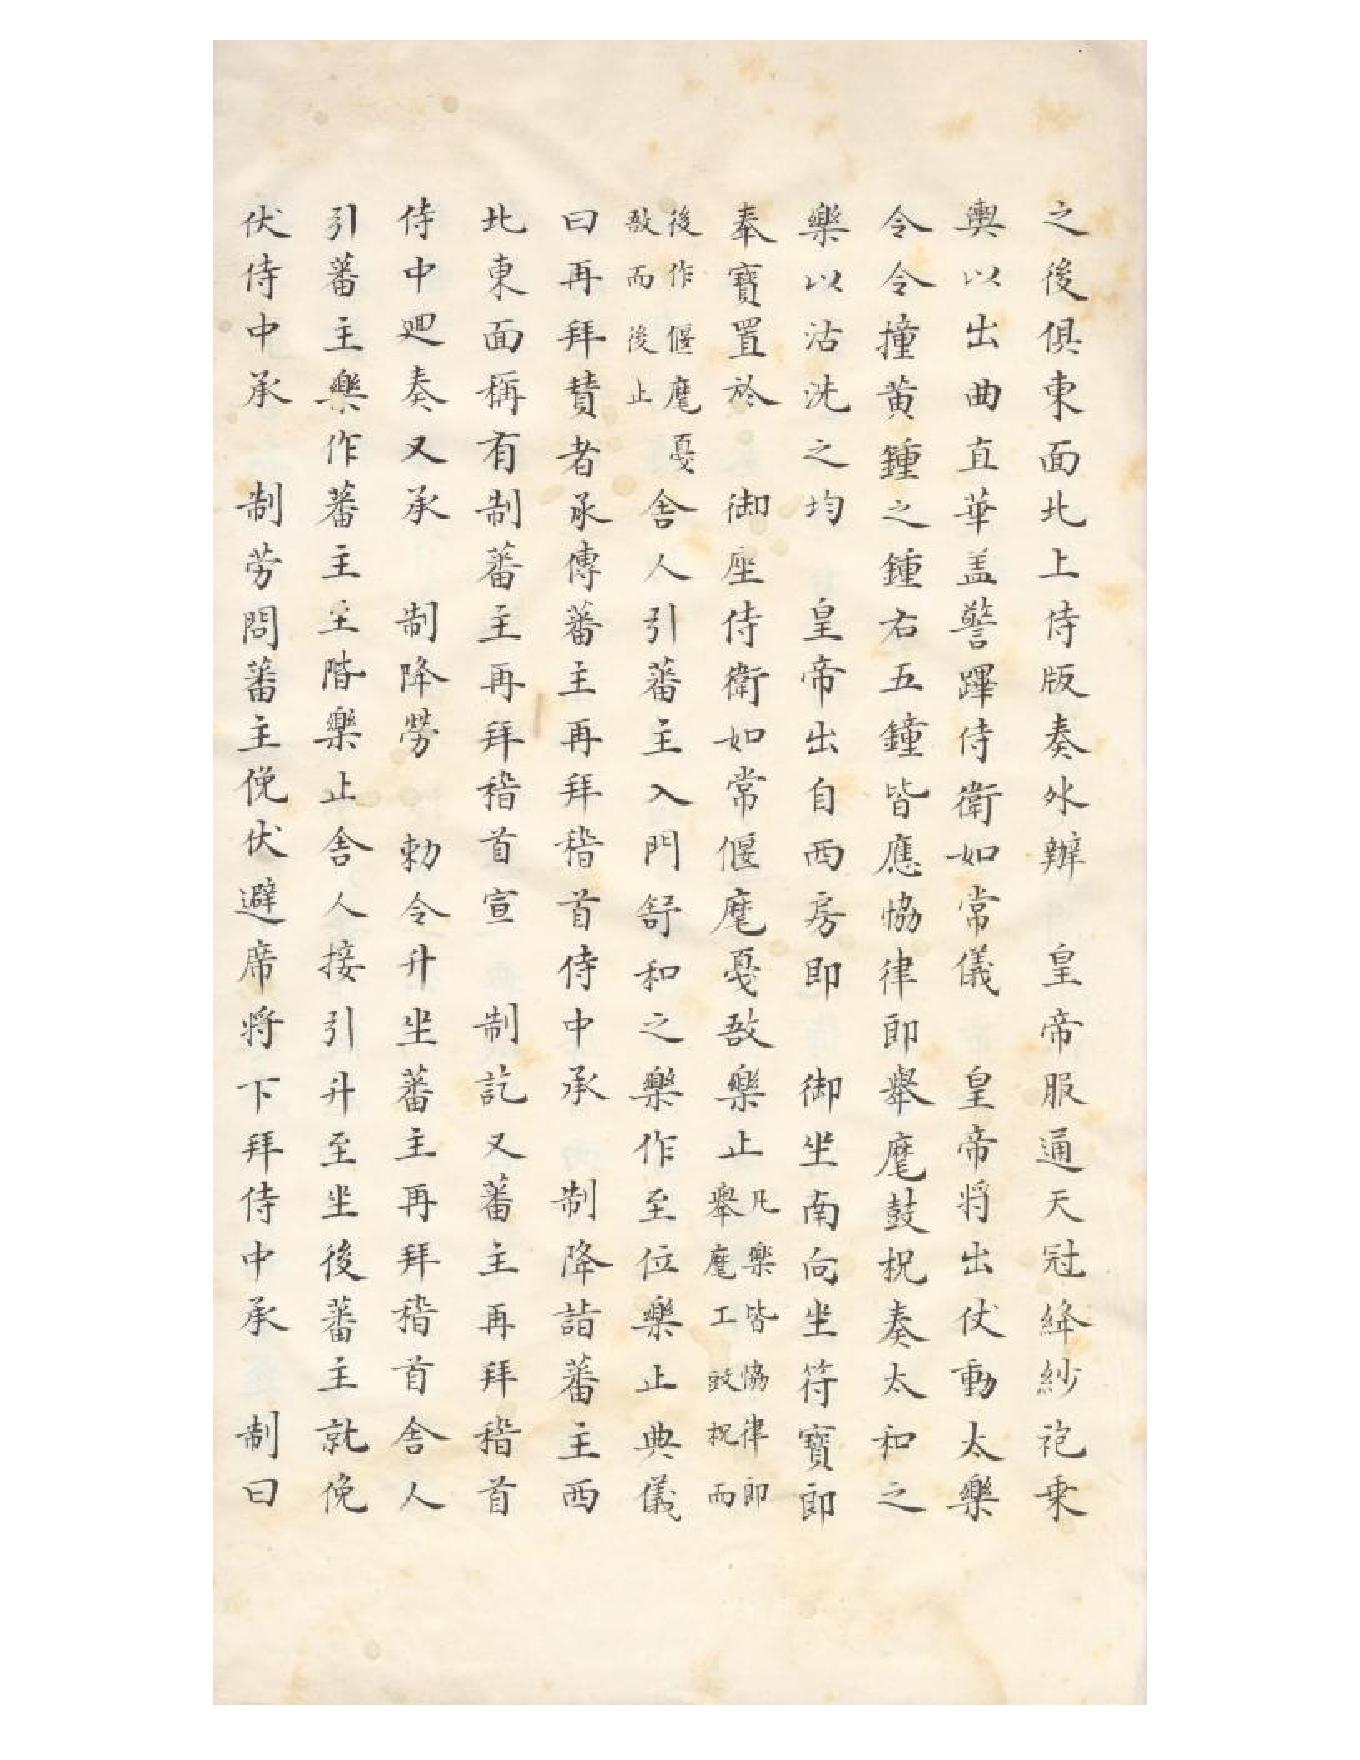 之後俱東面北上侍版奏外辦　皇帝服通天冠絳紗袍乗
輿以出曲直華盖警蹕侍衛如常儀　皇帝将出仗動太樂
令令撞黄鍾之鍾右五鐘皆應恊律郎舉麾鼓柷奏太和之
樂以沽洗之均　皇帝出自西房即　御坐南向坐符寶郎
奉寶置於　御座侍衛如常偃麾戞敔樂止凡樂皆恊律郎舉麾工鼓柷而
後作偃麾戞敔而後止舎人引蕃主入門舒和之樂作至位樂止典儀
曰再拜賛者承傳蕃主再拜稽首侍中承　制降詣蕃主西
北東面稱有制蕃主再拜稽首宣　制訖又蕃主再拜稽首
侍中廻奏又承　制降勞　勅令升坐蕃主再拜稽首舎人
引蕃主樂作蕃主至階樂止舎人接引升至坐後蕃主就俛
伏侍中承　制劳問蕃主俛伏避席将下拜侍中承　制曰